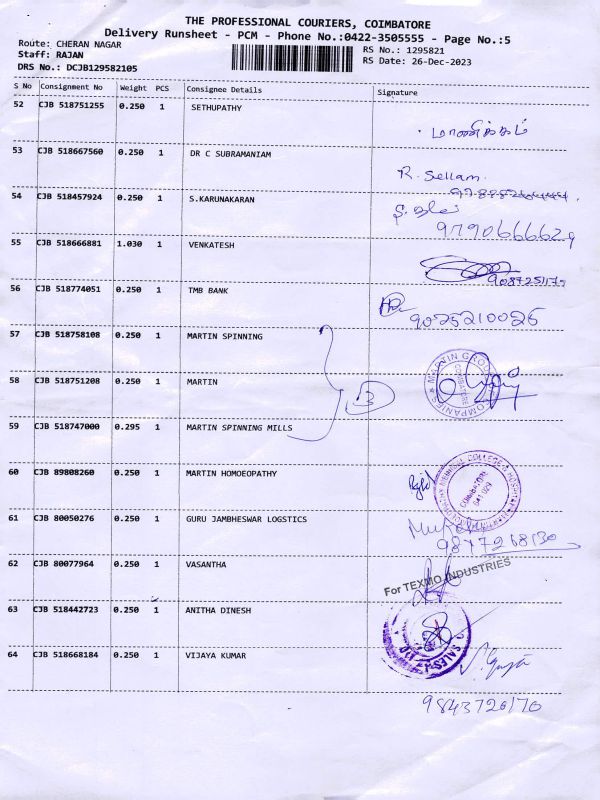 THE PROFESSIONAL COURIERS, COIMBATORE
Delivery Runsheet - PCM - Phone No.:0422-3505555 - Page No.:5
Route: CHERAN NAGAR
RS No.: 1295821
Staff: RAJAN
RS Date: 26-Dec-2023
DRS No.: DCJB129582105
S No Consignment No Weight PCS Consignee Details Signature
52 CJB 518751255 0.250 1 SETHUPATHY
மாணிக்கம்
53 CJB 518667560 0.250 1 DR C SUBRAMANIAM
R. Sellam.
54 CJB 518457924 0.250 1 S.KARUNAKARAN
9790666629
55 CJB 518666881 1.030 1 VENKATESH
9087251175
56 CJB 518774051 0.250 1 TMB BANK
9025210025
57 CJB 518758108 0.250 1 MARTIN SPINNING
58 CJB 518751208 0.250 1 MARTIN
3
MARTIN GROUP COMPANIES
COIMBATORE
59 CJB 518747000 0.295 1 MARTIN SPINNING MILLS
60 CJB 89808260 0.250 1 MARTIN HOMOEOPATHY
MEDICAL COLLEGE & HOSPITAL
COIMBATORE
641 029
61 CJB 80050276 0.250 1 GURU JAMBHESWAR LOGSTICS
9877268130
62 CJB 80077964 0.250 1 VASANTHA
For TEXMO INDUSTRIES
63 CJB 518442723 0.250 1 ANITHA DINESH
SALES
64 CJB 518668184 0.250 1 VIJAYA KUMAR
9843720170